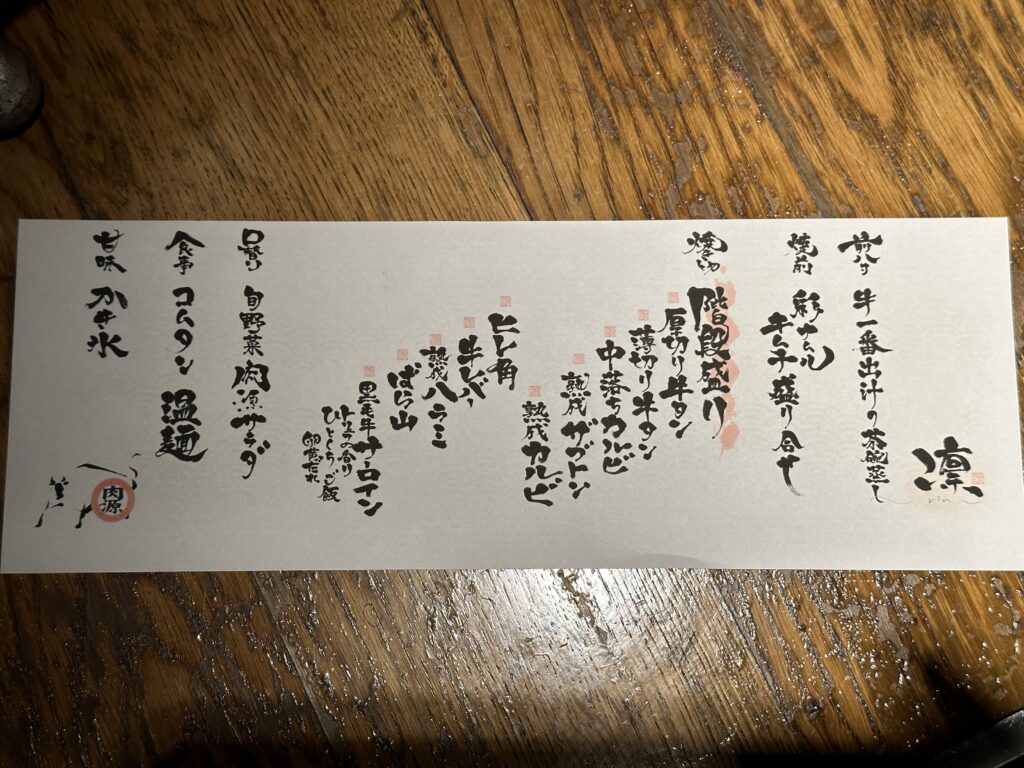 凛
rin
前八寸 牛一番出汁の茶碗蒸し
焼前 彩ナムル
キムチ盛り合せ
焼もの 階段盛り
厚切り牛タン
薄切り牛タン
中落ちカルビ
熟成 ザブトン
熟成 カルビ
ヒレ角
牛レバー
熟成 ハラミ
ばら山
黒毛牛 サーロイン
トリュフの香り
ひとくちご飯
卵黄だれ
口替り 旬野菜 肉源サラダ
食事 コムタン 温麺
甘味 かき氷
肉源